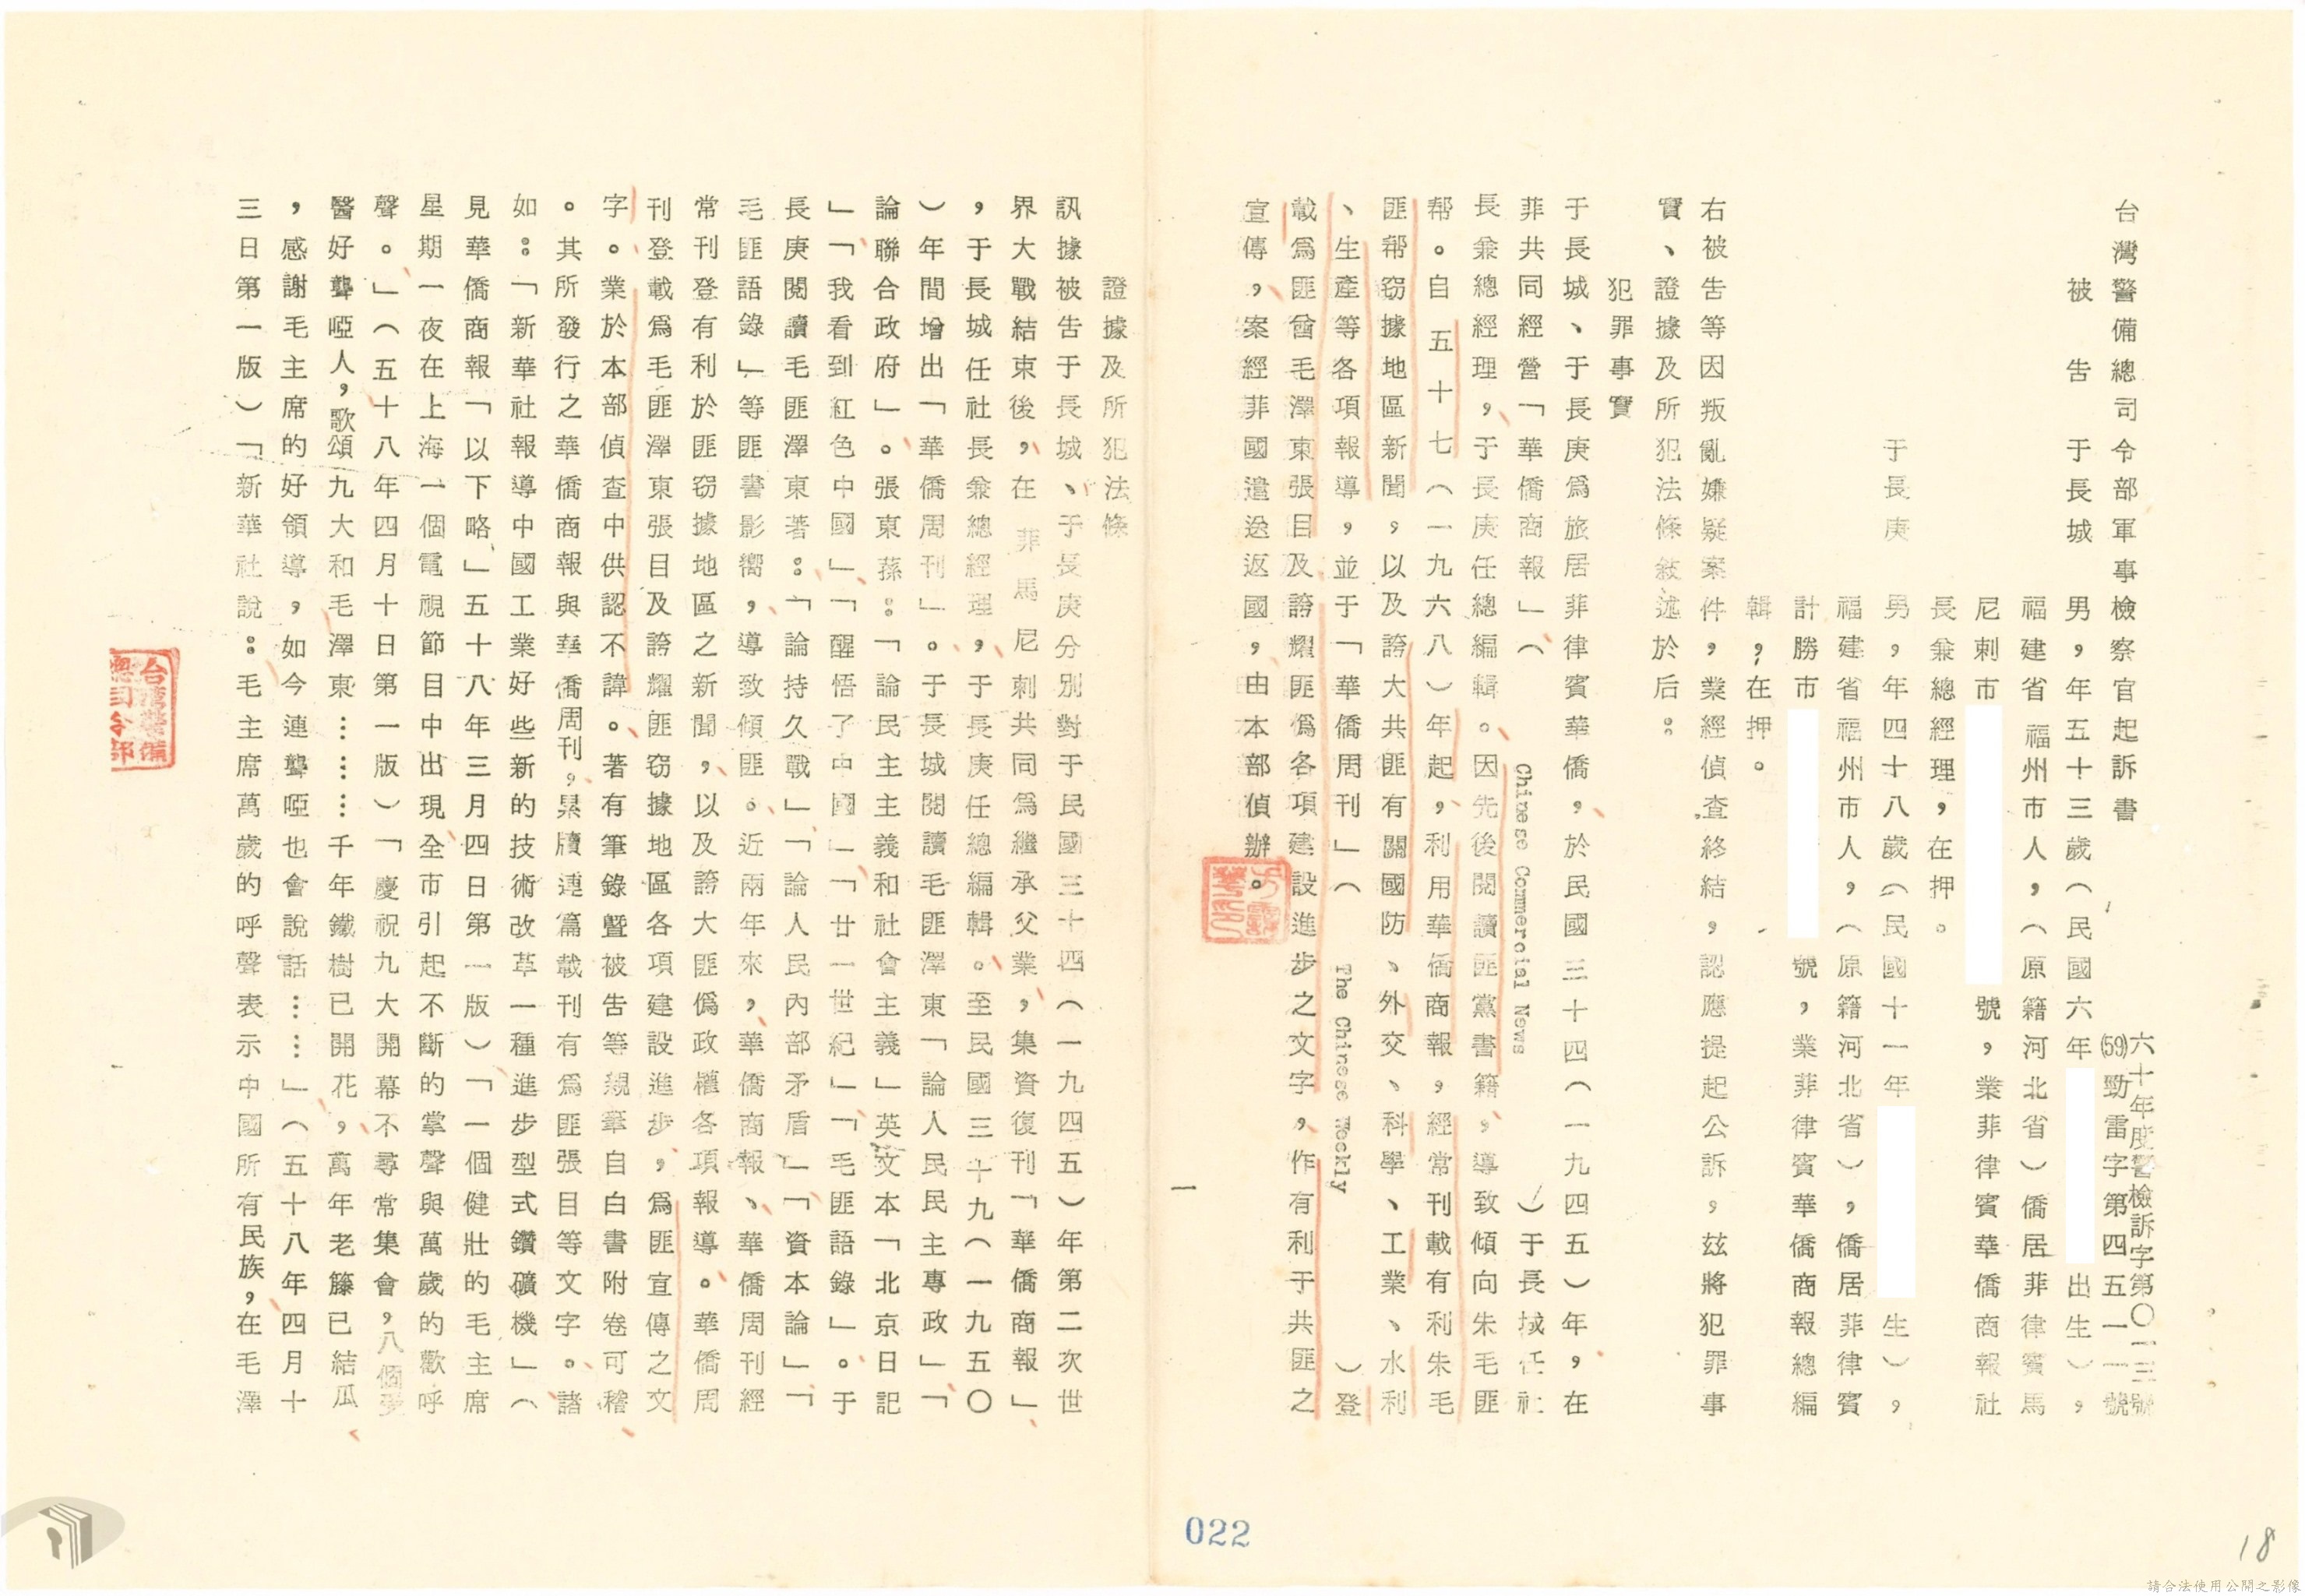 台灣警備總司令部軍事檢察官起訴書
六十年度警檢訴字第〇一三號
(59)勁雷字第四五一一號
被告 于長城 男,年五十三歲(民國六年 出生),
福建省福州市人,(原籍河北省)僑居菲律賓馬
尼剌市 號,業菲律賓華僑商報社
長兼總經理,在押。
于長庚 男,年四十八歲(民國十一年 生),
福建省福州市人,(原籍河北省),僑居菲律賓
計勝市 號,業菲律賓華僑商報總編
輯,在押。
右被告等因叛亂嫌疑案件,業經偵查終結,認應提起公訴,玆將犯罪事
實、證據及所犯法條敍述於后:
犯罪事實
于長城、于長庚爲旅居菲律賓華僑,於民國三十四(一九四五)年,在
菲共同經營「華僑商報」(Chinese Commercial News)于長城任社
長兼總經理,于長庚任總編輯。因先後閱讀匪黨書籍,導致傾向朱毛匪
帮。自五十七(一九六八)年起,利用華僑商報,經常刊載有利朱毛
匪帮窃據地區新聞,以及誇大共匪有關國防、外交、科學、工業、水利
、生產等各項報導,並于「華僑周刊」(The Chinese Weekly)登
載爲匪酋毛澤東張目及誇耀匪僞各項建設進步之文字,作有利于共匪之
宣傳,案經菲國遣送返國,由本部偵辦。
一
證據及所犯法條
訊據被告于長城、于長庚分別對于民國三十四(一九四五)年第二次世
界大戰結束後,在菲馬尼剌共同爲繼承父業,集資復刊「華僑商報」
,于長城任社長兼總經理,于長庚任總編輯。至民國三十九(一九五〇
)年間增出「華僑周刊」。于長城閱讀毛匪澤東「論人民民主專政」「
論聯合政府」。張東蓀:「論民主主義和社會主義」英文本「北京日記
」「我看到紅色中國」「醒悟了中國」「廿一世紀」「毛匪語錄」。于
長庚閱讀毛匪澤東著:「論持久戰」「論人民內部矛盾」「資本論」「
毛匪語錄」等匪書影嚮,導致傾匪。近兩年來,華僑商報、華僑周刊經
常刊登有利於匪窃據地區之新聞,以及誇大匪僞政權各項報導。華僑周
刊登載爲毛匪澤東張目及誇耀匪窃據地區各項建設進步,爲匪宣傳之文
字。業於本部偵查中供認不諱。著有筆錄暨被告等親筆自白書附卷可稽
。其所發行之華僑商報與華僑周刊,累牘連篇載刊有爲匪張目等文字。諸
如:「新華社報導中國工業好些新的技術改革一種進步型式鑽礦機」(
見華僑商報「以下略」五十八年三月四日第一版)「一個健壯的毛主席
星期一夜在上海一個電視節目中出現全市引起不斷的掌聲與萬歲的歡呼
聲。」(五十八年四月十日第一版)「慶祝九大開幕不尋常集會,八個受
醫好聾啞人,歌頌九大和毛澤東………千年鐵樹已開花,萬年老籐已結瓜
,感謝毛主席的好領導,如今連聾啞也會說話……」(五十八年四月十
三日第一版)「新華社說:毛主席萬歲的呼聲表示中國所有民族,在毛澤
台灣警備
總司令部
022
18
請合法使用公開之影像